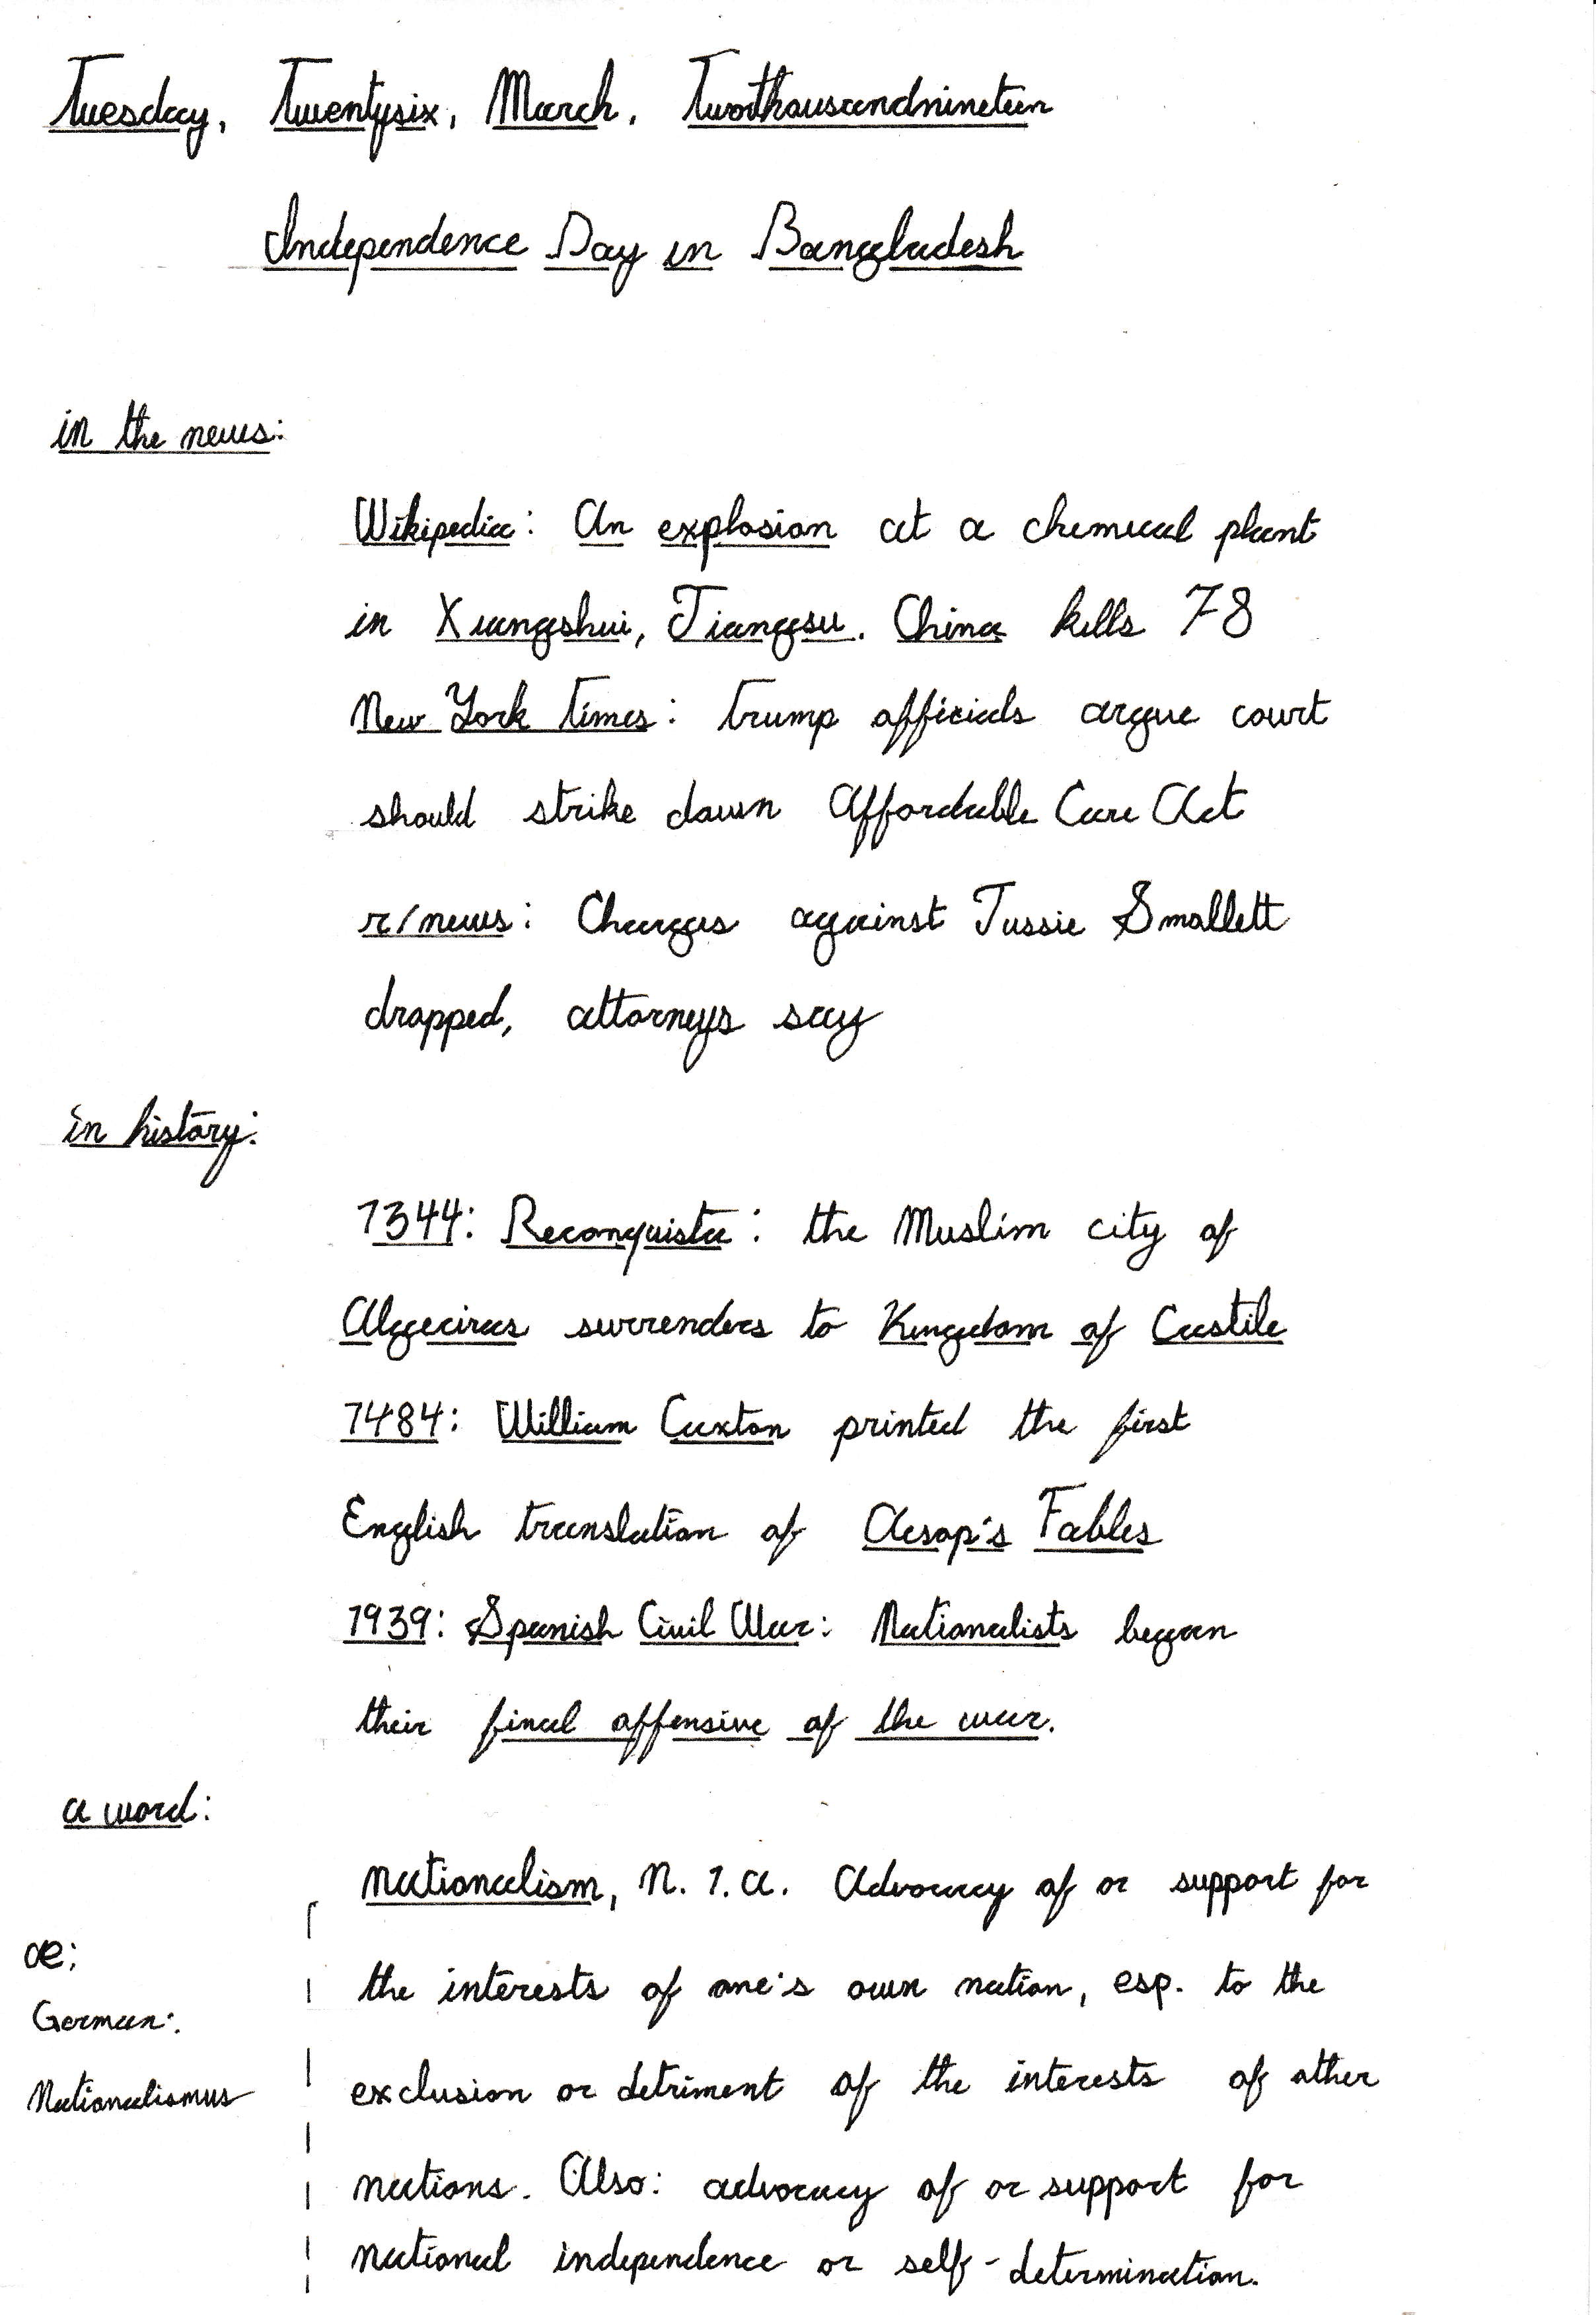 Tuesday, Twentysix, March, Twothousandnineteen
Independence Day in Bangladesh
in the news:
Wikipedia: An explosion at a chemical plant
in Xiangshui, Jiangsu, China kills 78
New York Times: Trump officials argue court
should strike down Affordable Care Act
r/news: Charges against Jussie Smollett
dropped, attorneys say
in history:
1344: Reconquista: the Muslim city of
Algeciras surrenders to Kingdom of Castile
1484: William Caxton printed the first
English translation of Aesop's Fables
1939: Spanish Civil War: Nationalists began
their final offensive of the war.
a word:
nationalism, n. 1. a. Advocacy of or support for
the interests of one's own nation, esp. to the
exclusion or detriment of the interests of other
nations. Also: advocacy of or support for
national independence or self-determination.
æ:
German:
Nationalismus